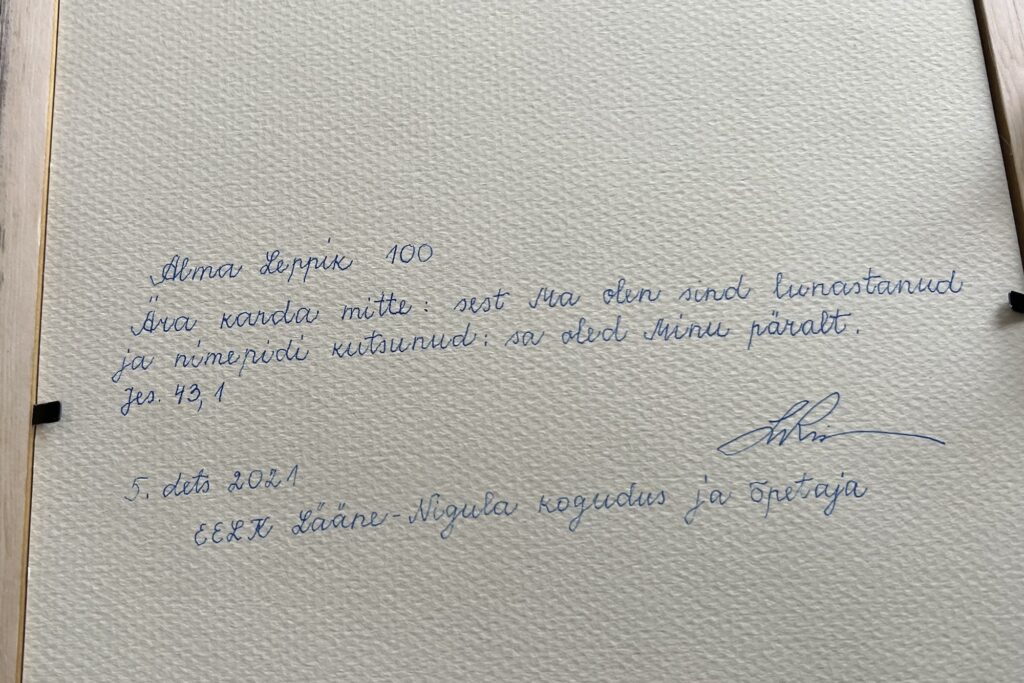 Alma Leppik 100
Ära karda mitte: sest Ma olen sind lunastanud
ja nimepidi kutsunud: sa oled Minu päralt.
Jes. 43, 1
5. dets 2021
EELK Lääne-Nigula kogudus ja õpetaja